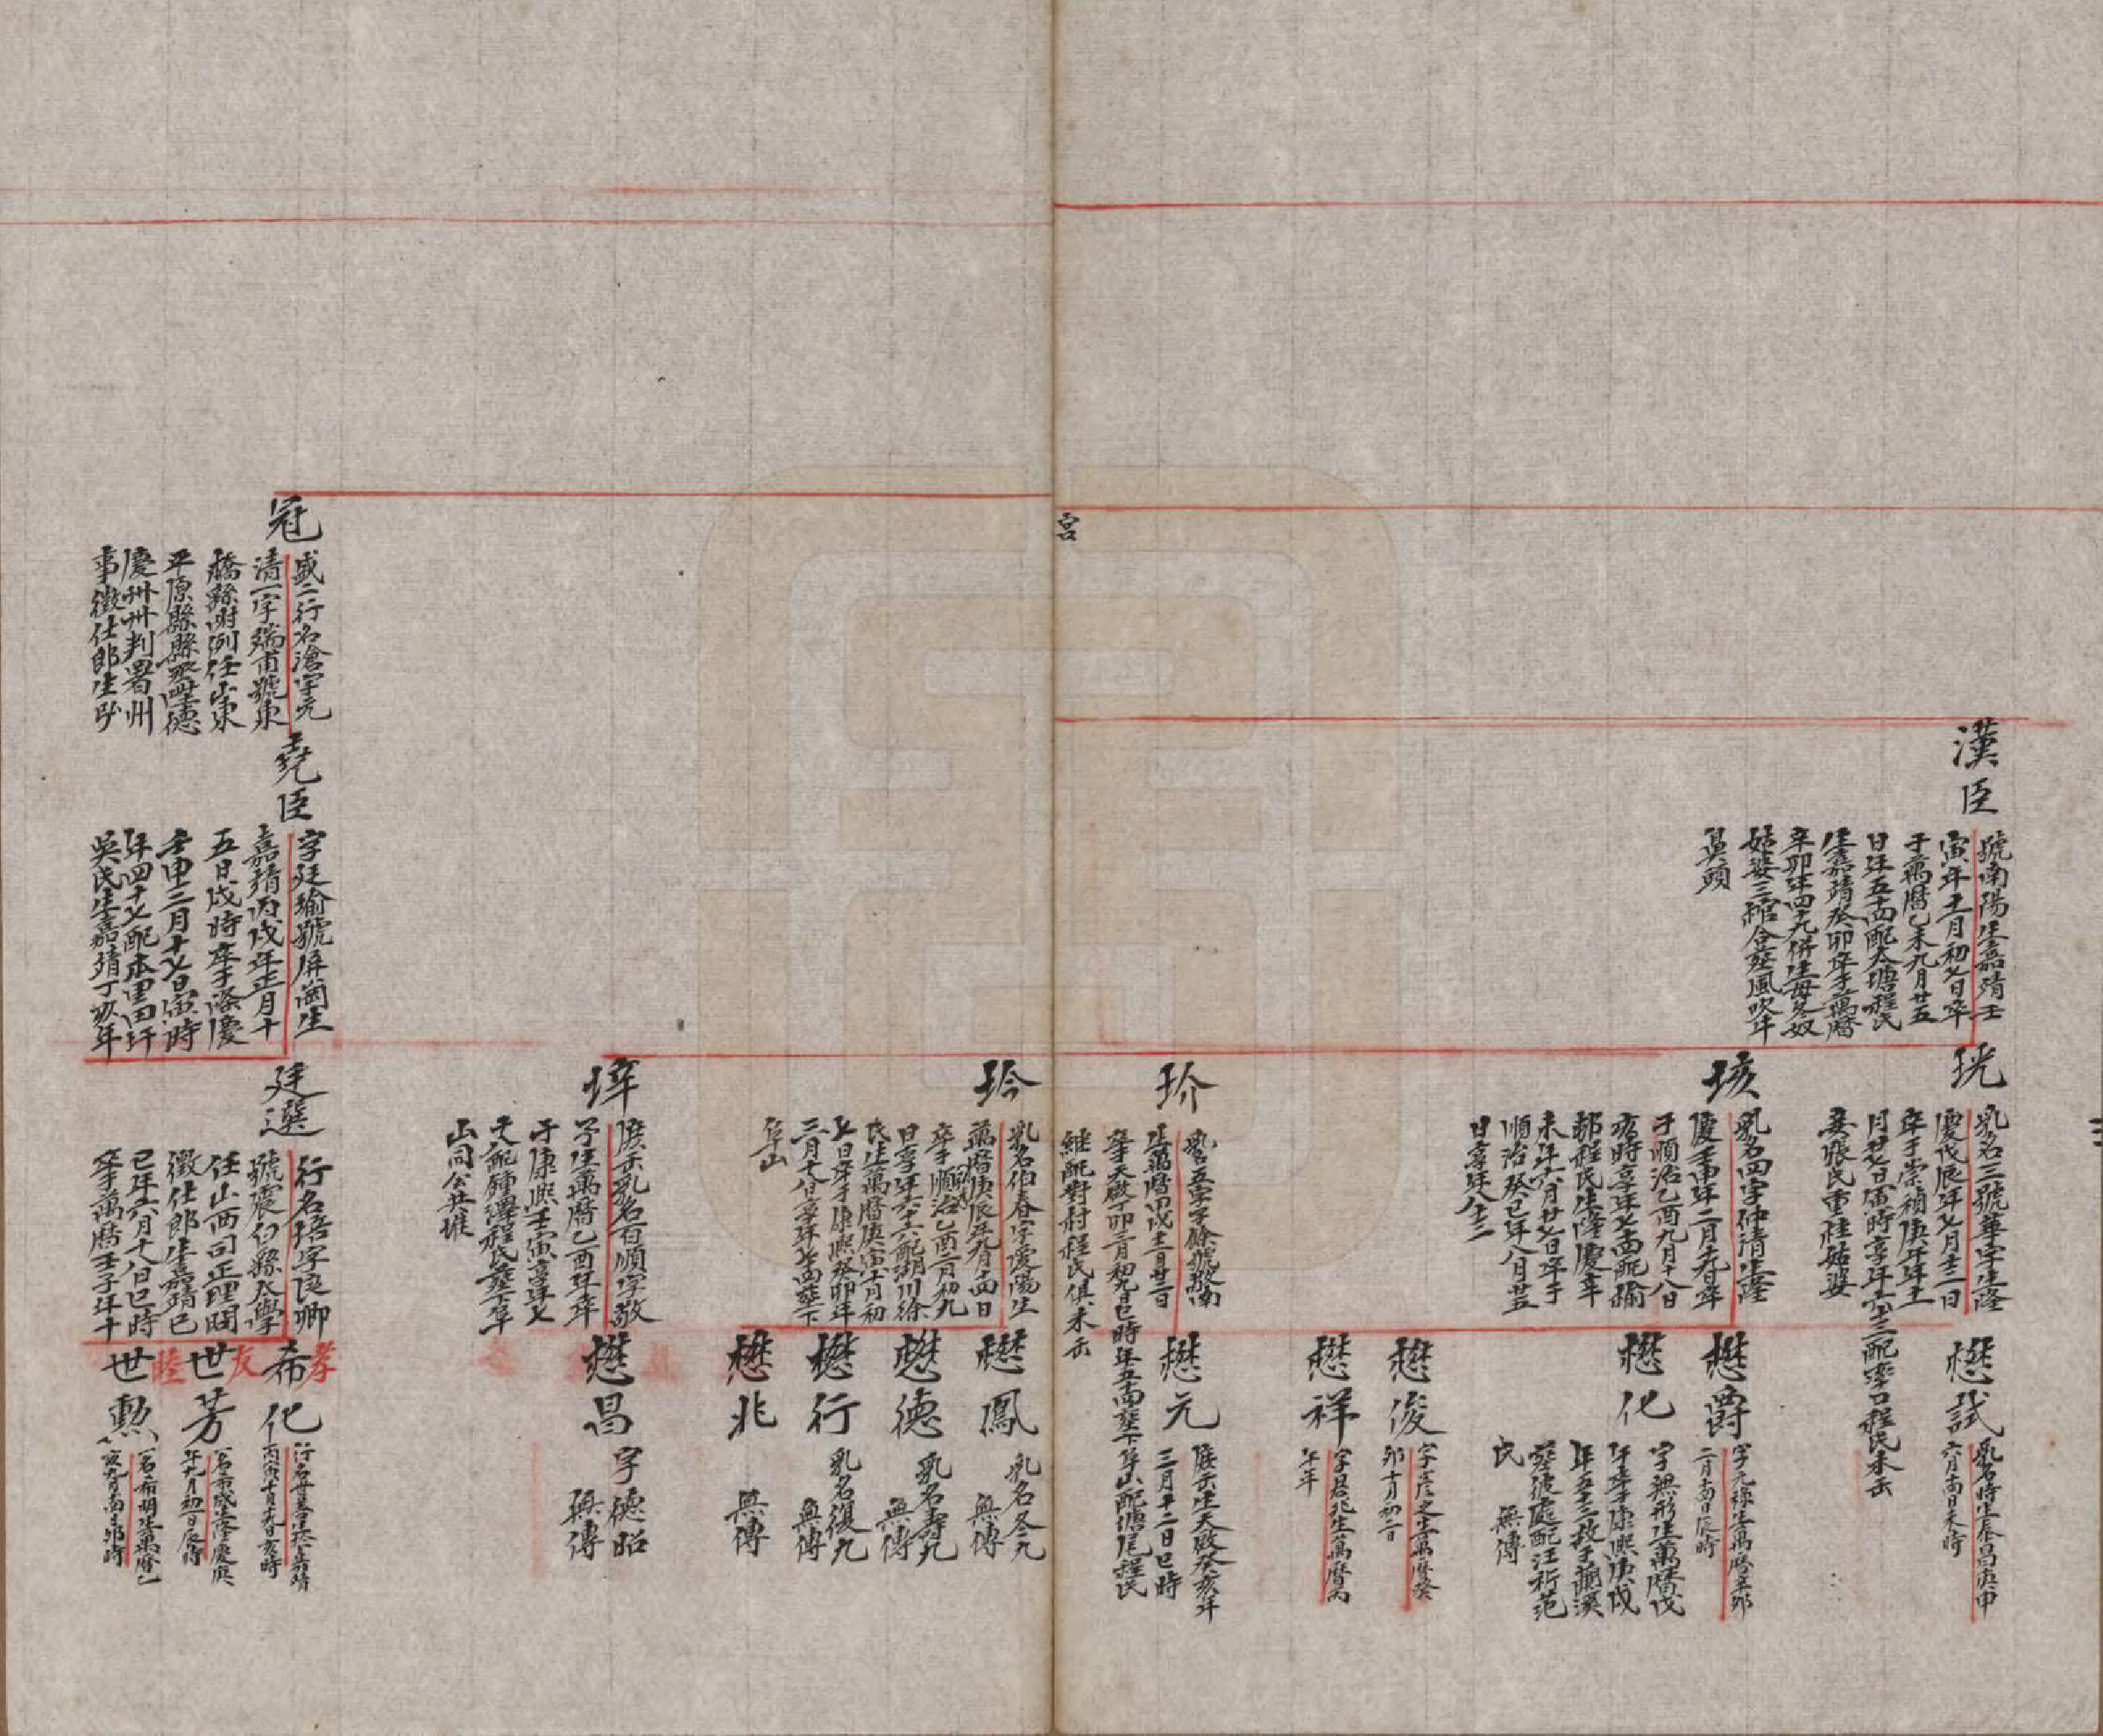 宮
漢臣
號南陽生嘉靖壬
寅年十一月初七日卒
于萬曆乙未九月廿五
日年五十四配大塘程氏
生嘉靖癸卯卒于萬曆
辛卯年四十九併生母冬奴
姑婆三棺合葬風吹牛
鼻頭
珖
乳名三號華宇生隆
慶戊辰年七月十二日
卒于崇禎庚辰年十二
月廿七日寅時享年七十三配率口程氏未缶
妾張氏重桂姑婆
懋試
乳名時生泰昌庚申
六月十四日未時
垓
乳名四字仲清生隆
慶壬申年二月十九日卒
于順治乙酉九月十八日
亥時享年七十四配
鄣程氏生隆慶辛
未年六月廿七日卒于
順治癸巳年八月廿五
日享年八十三
懋爵
字元祿生萬曆辛卯
二月十四日辰時
懋化
字無形生萬曆戊
午卒于康熙庚戌
年五十三
葬彼處配汪祈范
氏 無傳
懋俊
字彥之生萬曆癸
卯十月初二日
懋祥
字君兆生萬曆丙
午年
玠
乳名五字字餘號敬南
生萬曆甲戌十二月廿三日
卒天啟丁卯二月初九日巳時年五十四葬下阜山配塘尾程氏
繼配對村程氏俱未缶
懋元
庶子生天啟癸亥年
三月十二日巳時
玲
乳名伯春字愛陽生
萬曆庚辰五月十四日
卒于順治乙酉二月初九
日享年六十六配湖川徐
氏生萬曆庚寅十月初
七日卒于康熙癸卯年
三月十八日享年七十四葬下
阜山
懋鳳
乳名冬九
無傳
懋德
乳名壽九
無傳
懋行
乳名復九
無傳
懋兆
無傳
垶
庶子乳名百順字敬
予生萬曆乙酉年卒
于康熙壬寅享年七
十八配臨溪程氏葬下阜
山同公共堆
懋昌
字德昭
無傳
冠
盛二行名滄字元
清一字端甫號東
橋縣附例任山東
平原縣縣丞陞德
慶州州判署州
事徵仕郎生歿
堯臣
字廷瑜號屏岡生
嘉靖丙戌年正月十
五日戌時卒于隆慶
壬申三月十七日寅時
年四十七配本里田圩
吳氏生嘉靖丁亥年
廷選
行名培字良卿
號震白縣太學
任山西司正理問
徵仕郎生嘉靖己
巳年六月十八日巳時
卒萬曆壬子年十
孝
希化
行名世
丙寅十月十九日亥時
友
世芳
一名希成生隆慶庚
午九月初一日辰時
睦
世勲
一名希明生萬曆乙
亥九月十四日卯時